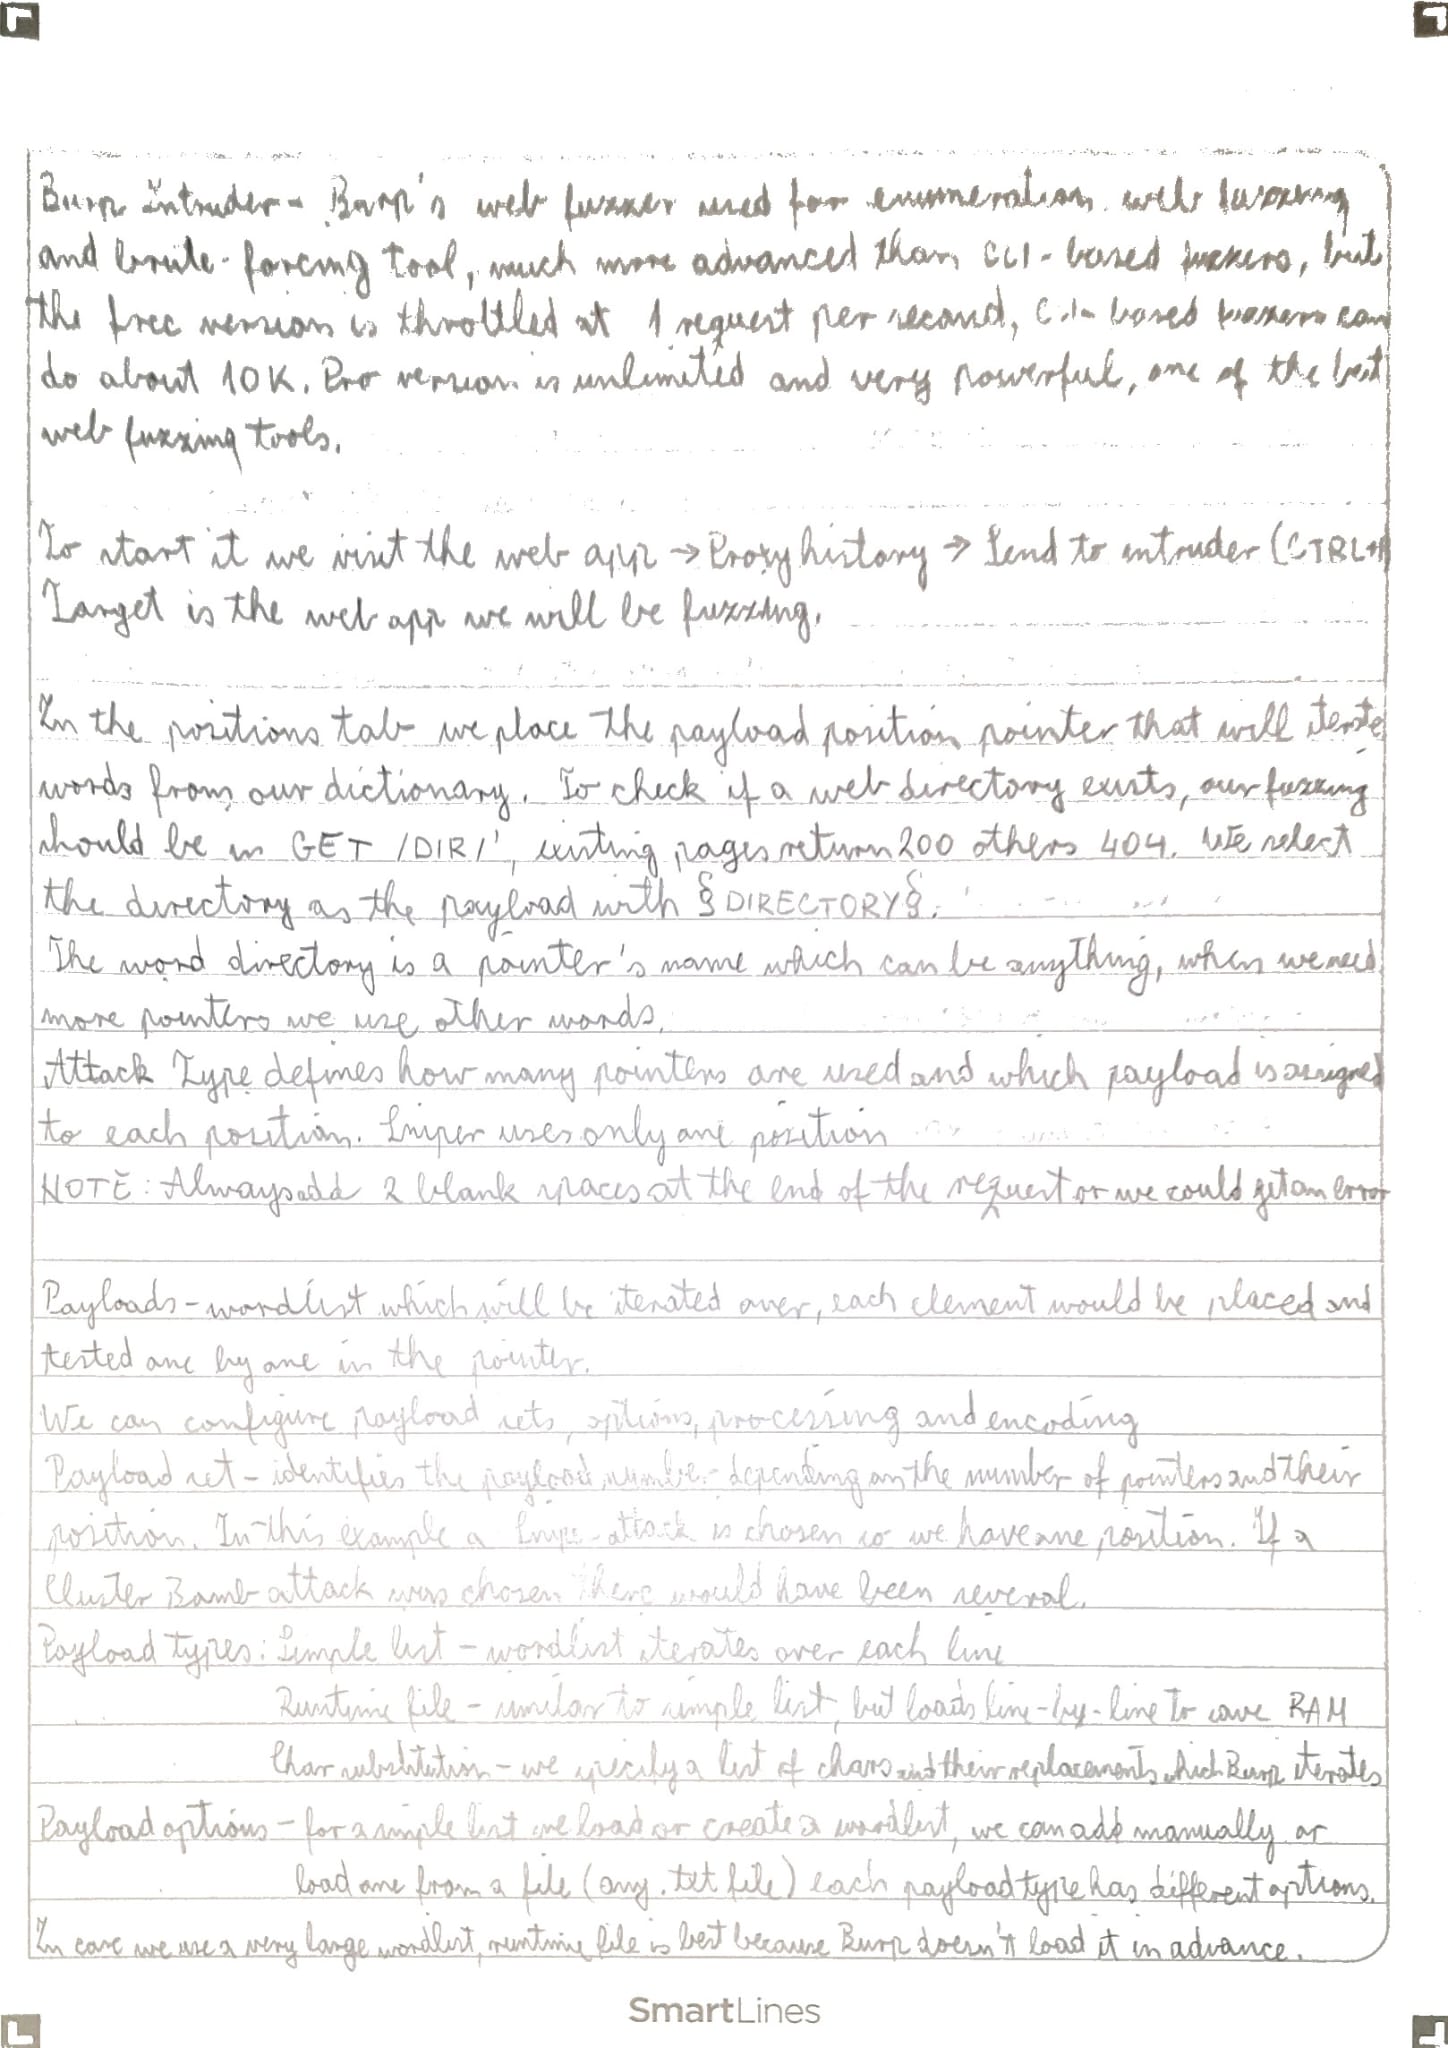 Burp Intruder - Burp's web fuzzer used for enumeration. web fuzzing
and brute-forcing tool, much more advanced than CLI-based fuzzers, but
the free version is throttled at 1 request per second, CLI-based fuzzers can
do about 10K. Pro version is unlimited and very powerful, one of the best
web fuzzing tools.
To start it we visit the web app → Proxy history → Send to intruder (CTRL+I
Target is the web app we will be fuzzing.
In the positions tab we place the payload position pointer that will iterate
words from our dictionary. To check if a web directory exists, our fuzzing
should be in GET /DIR/', existing pages return 200 others 404. We select
the directory as the payload with §DIRECTORY§.
The word directory is a pointer's name which can be anything, when we need
more pointers we use other words.
Attack Type defines how many pointers are used and which payload is assigned
to each position. Sniper uses only one position
NOTE: Always add 2 blank spaces at the end of the request or we could get an error
Payloads - wordlist which will be iterated over, each element would be placed and
tested one by one in the pointer.
We can configure payload sets, options, processing and encoding
Payload set - identifies the payload number depending on the number of pointers and their
position. In this example a Sniper attack is chosen so we have one position. If a
Cluster Bomb attack was chosen there would have been several.
Payload types: Simple list - wordlist iterates over each line
Runtime file - similar to simple list, but loads line-by-line to save RAM
Char substitution - we specify a list of chars and their replacements which Burp iterates
Payload options - for a simple list we load or create a wordlist, we can add manually or
load one from a file (any .txt file) each payload type has different options.
In case we use a very large wordlist, runtime file is best because Burp doesn't load it in advance.
SmartLines